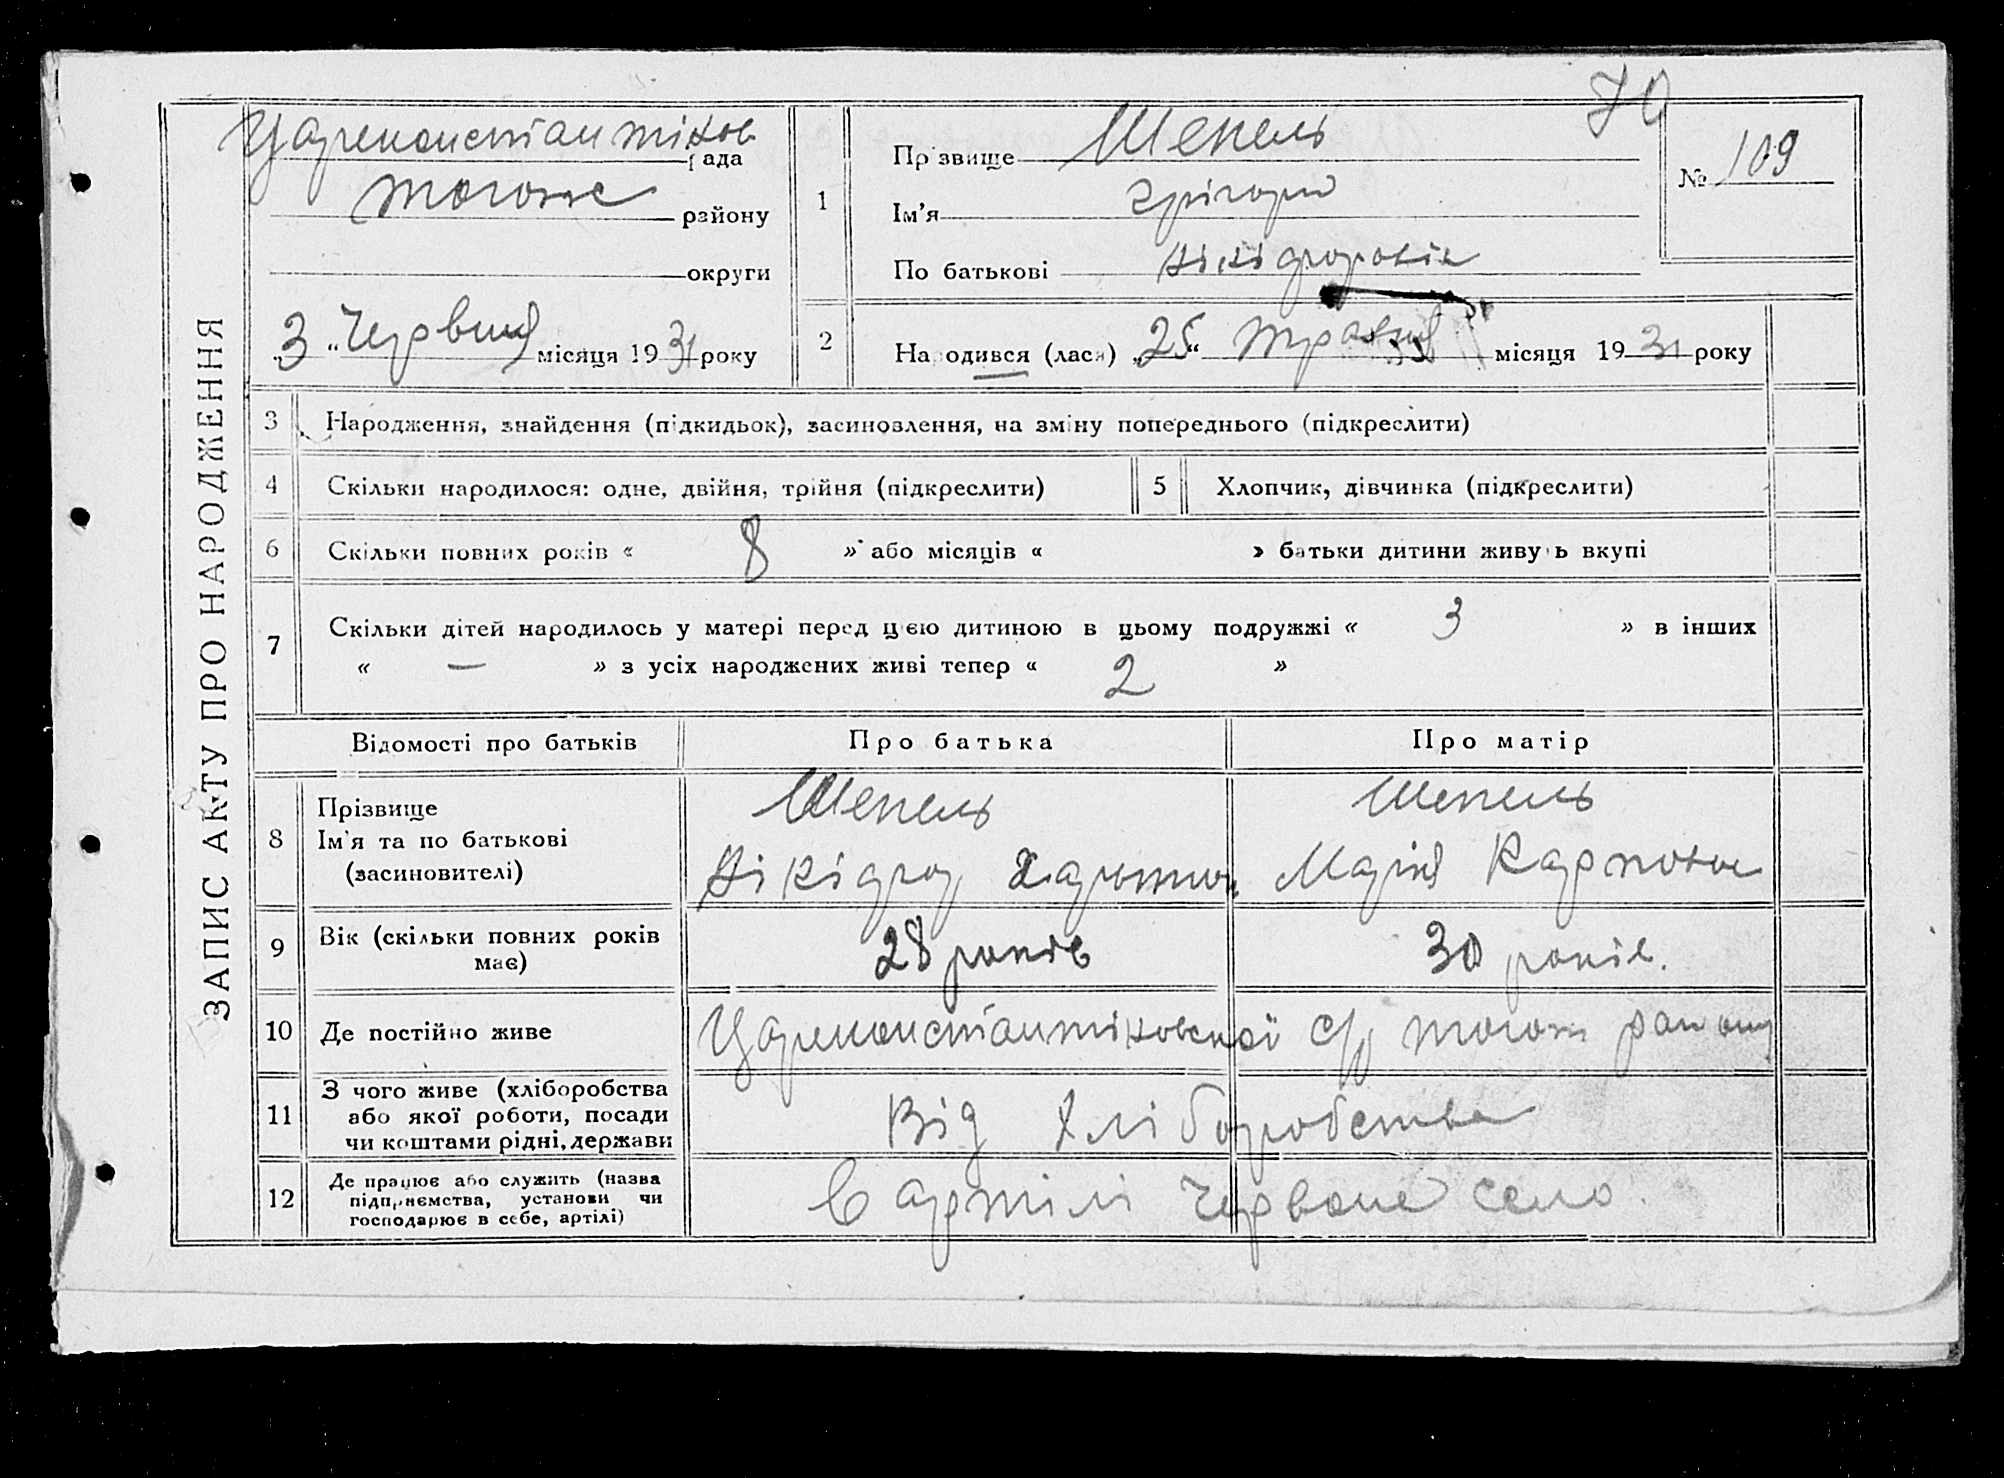 70
ЗАПИС АКТУ ПРО НАРОДЖЕННЯ
Цареконстантінов рада
тогож району
округи
„3“ Червня місяця 1931 року
1
Прізвище Шепель
Ім'я Грігорій
По батькові Нікіфоровіч
№ 109
2
Народився (лася) „25“ травня місяця 1931 року
3 Народження, знайдення (підкидьок), засиновлення, на зміну попереднього (підкреслити)
4 Скільки народилося: одне, двійня, трійня (підкреслити)
5 Хлопчик, дівчинка (підкреслити)
6 Скільки повних років « 8 » або місяців « » батьки дитини живуть вкупі
7 Скільки дітей народилось у матері перед цією дитиною в цьому подружжі « 3 » в інших
« — » з усіх народжених живі тепер « 2 »
Відомості про батьків Про батька Про матір
8 Прізвище
Ім'я та по батькові
(засиновителі)
Шепель
Нікіфор
Шепель
Марія Карповна
9 Вік (скільки повних років
має)
28 років
30 років.
10 Де постійно живе
Цареконстантіновської с/р тогож району
11 З чого живе (хліборобства
або якої роботи, посади
чи коштами рідні, держави
Від хліборобства
12 Де працює або служить (назва
підприємства, установи чи
господарює в себе, артілі)
В артілі Червоне село.